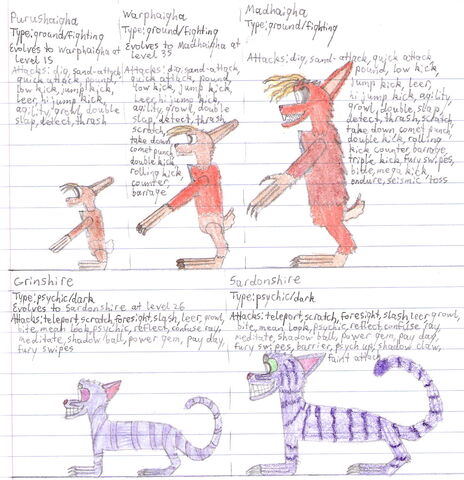 Purushaigha
Type:ground/fighting
Evolves to Warphaigha at
Level 15
Attacks: dig, sand-attack,
quick attack, pound,
low kick, jump kick,
leer, hi jump kick,
agility, growl, double
slap, detect, thrash
Warphaigha
Type:ground/fighting
Evolves to Madhaigha at
level 35
Attacks: dig, sand-attack,
quick attack, pound,
low kick, jump kick,
leer, hi jump kick,
agility, growl, double
slap, detect, thrash
scratch,
take down,
comet punch,
double kick,
rolling
kick,
counter,
barrage
Madhaigha
Type:ground/fighting
Attacks: dig, sand-attack, quick attack,
pound, low kick,
jump kick, leer,
hi jump kick, agility,
growl, double, slap,
detect, thrash, scratch,
take down comet punch,
double kick, rolling
kick counter, barrage,
triple kick, fury swipes,
bite, mega kick
endure, seismic toss
Grinshire
Type:psychic/dark
Evolves to Sardonshire at level 26
Attacks: teleport, scratch, foresight, slash, leer, growl,
bite, mean look, psychic, reflect, confuse ray,
meditate, shadow ball, power gem, pay day,
fury swipes
Sardonshire
Type:psychic/dark
Attacks: teleport, scratch, foresight, slash leer growl,
bite, mean look, psychic, reflect, confuse ray,
meditate, shadow ball, power gem, pay day,
fury swipes, barrier, psych up, shadow claw,
faint attack